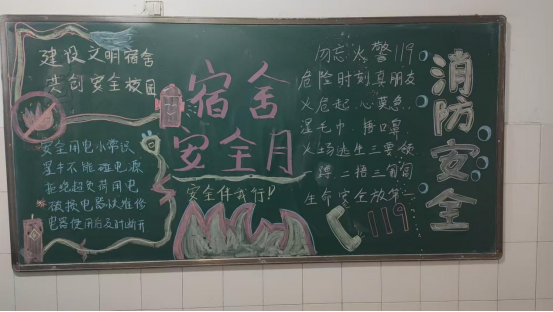 建设文明宿舍
共创安全校园
安全用电小常识
湿手不能碰电源
拒绝超负荷用电
破损电器快维修
电器使用后及时断开
宿舍
安全月
安全伴我行!
勿忘火警119
危险时刻真朋友
火危起,心莫急,
湿毛巾,捂口鼻,
火场逃生三要领
蹲二捂三匍匐
生命安全放第一
119
消防安全